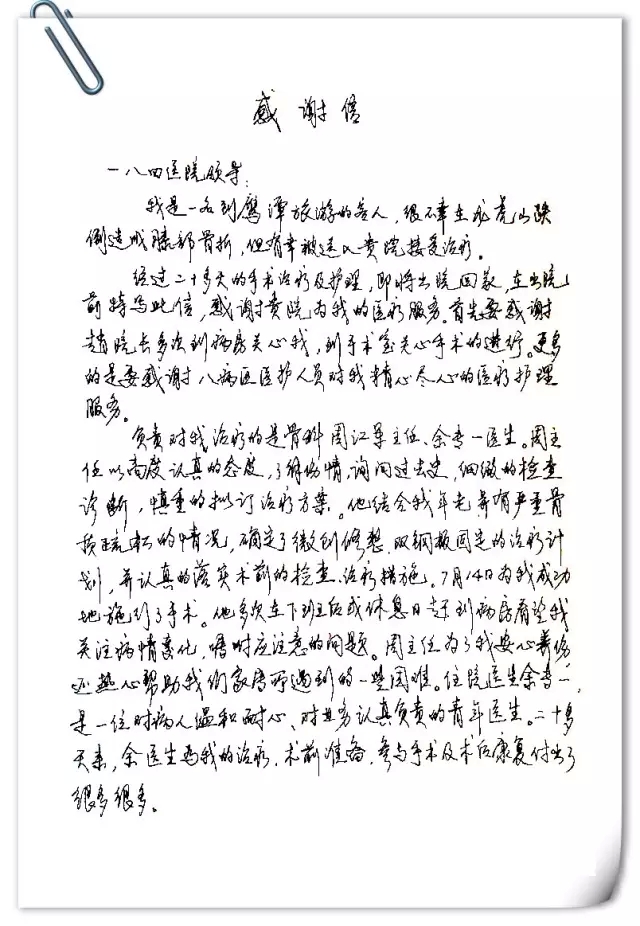 感谢信
一八四医院领导:
我是一名到鹰潭旅游的客人,很不幸在龙虎山跌
倒造成膝部骨折,但有幸被送入贵院接受治疗。
经过二十多天的手术治疗及护理,即将出院回家,在出院
前特写此信,感谢贵院为我的医疗服务。首先要感谢
赵院长多次到病房关心我,到手术室关心手术的进行。更多
的是要感谢八病区医护人员对我精心尽心的医疗护理
服务。
负责对我治疗的是骨科周江军主任、余专一医生。周主
任以高度认真的态度,了解伤情,询问过去史,细微的检查
诊断,慎重的拟订治疗方案。他结合我年老并有严重骨
质疏松的情况,确定了微创修整,双钢板固定的治疗计
划,并认真的落实术前的检查、治疗措施。7月14日为我成功
地施行了手术。他多次在下班后或休息日赶到病房看望我
关注病情变化,嘱咐应注意的问题。周主任为了我安心养伤
还热心帮助我们家属所遇到的一些困难。住院医生余专一,
是一位对病人温和耐心、对业务认真负责的青年医生。二十多
天来,余医生为我的治疗、术前准备,参与手术及术后康复付出了
很多很多。